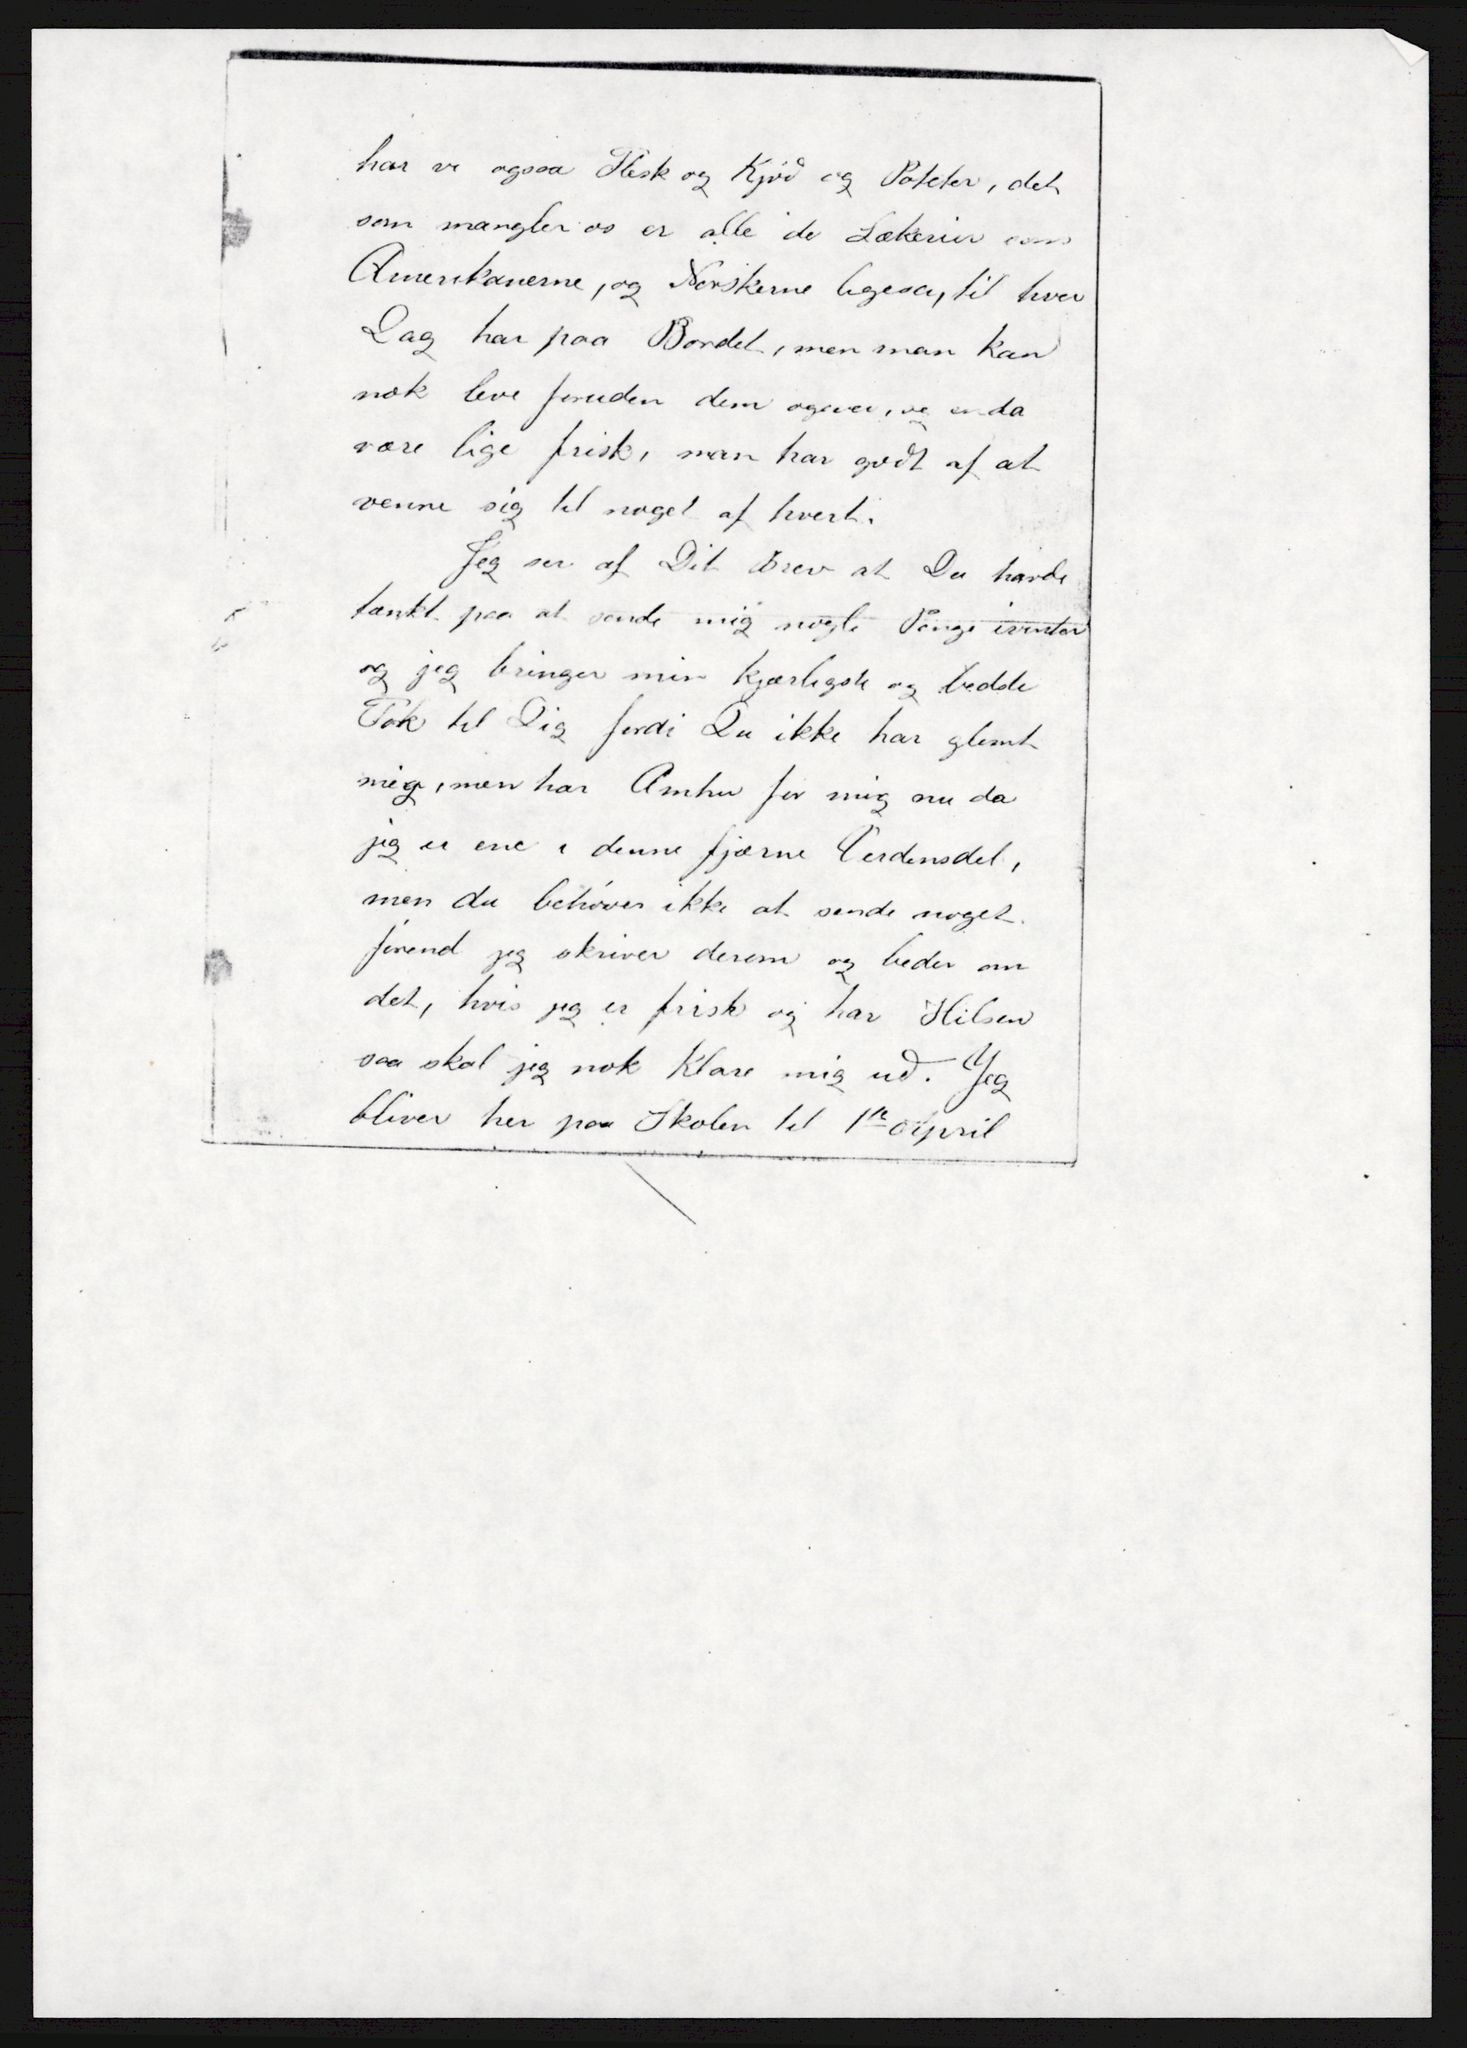 har vi ogsaa Flesk og Kjød og Poteter, det
som mangler os er alle de Lækerier som
Amerikanerne, og Norskerne ligesaa, til hver
Dag har paa Bordet, men man kan
nok leve foruden dem ogsaa, og enda
være lige frisk, man har godt af at
venne sig til noget af hvert.
Jeg ser af Dit Brev at Du havde
tænkt paa at sende mig nogle Penge ivinter
og jeg bringer min kjærligste og bedste
Tak til Dig fordi Du ikke har glemt
mig, men har Omhu for mig nu da
jeg er ene i denne fjærne Verdensdel,
men du behøver ikke at sende noget
førend jeg skriver derom og beder om
det, hvis jeg er frisk og har Hilsen
saa skal jeg nok klare mig ud. Jeg
bliver her paa Skolen til 1ste April